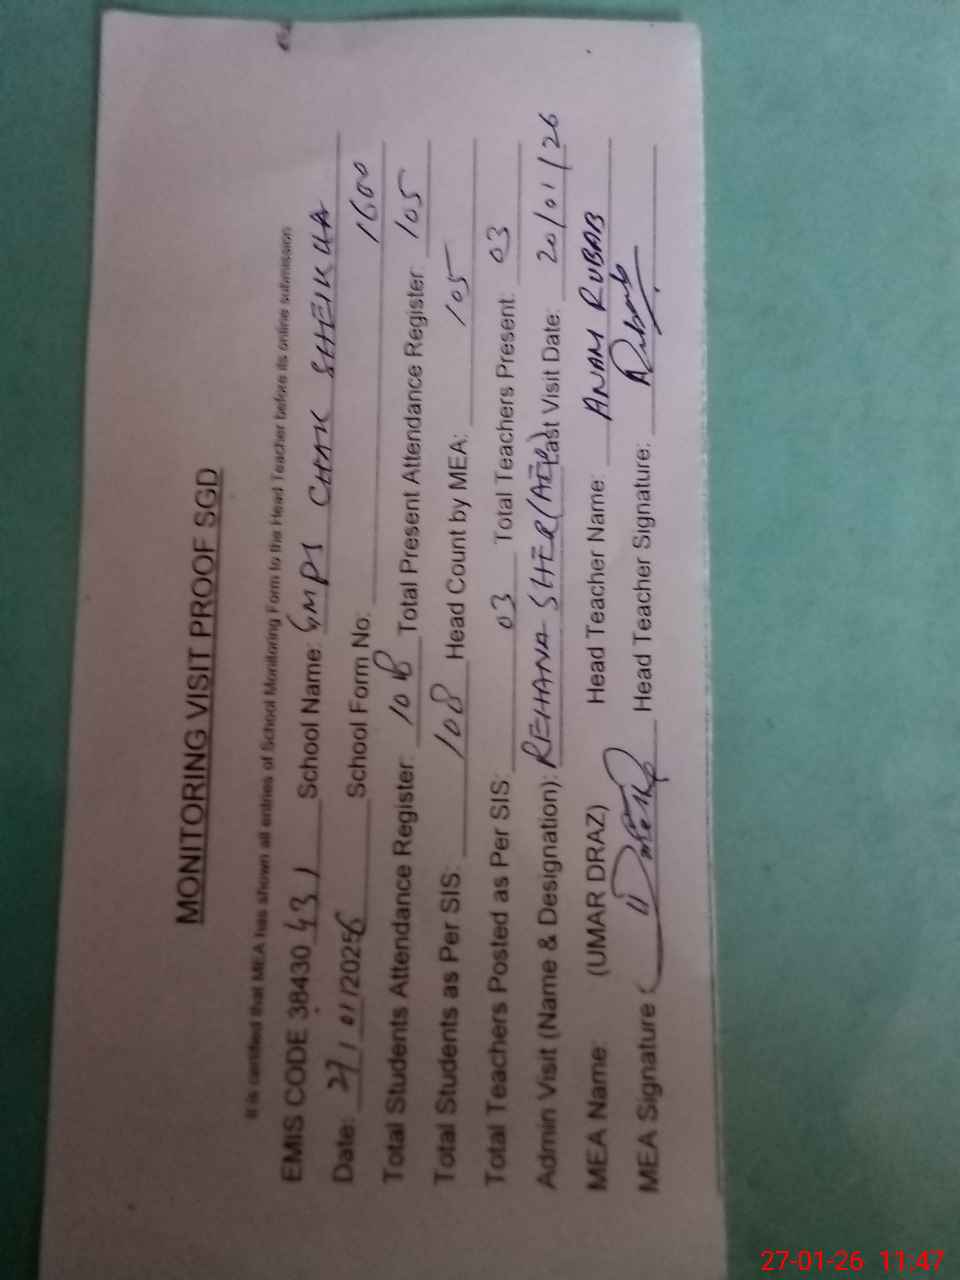 MONITORING VISIT PROOF SGD
It is certified that MEA has shown all entries of School Monitoring Form to the Head Teacher before its online submission
EMIS CODE 38430431 School Name: GMPS CHAK SHEIKHA
Date: 27/01/2026 School Form No: 1600
Total Students Attendance Register: 108 Total Present Attendance Register: 105
Total Students as Per SIS: 108 Head Count by MEA: 105
Total Teachers Posted as Per SIS: 03 Total Teachers Present: 03
Admin Visit (Name & Designation): REHANA SHER(AEO) Last Visit Date: 20/01/26
MEA Name: (UMAR DRAZ) Head Teacher Name: ANAM RUBAB
MEA Signature Head Teacher Signature: Rubab
27-01-26 11:47